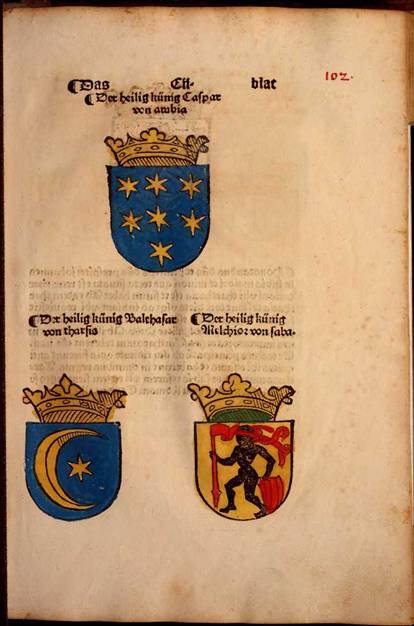 ¶Das Cii· blat
102.
¶Der heilig künig Caspar
von arabia
¶Der heilig künig Balthasar
von tharsis
¶Der heilig künig
Melchior von saba·